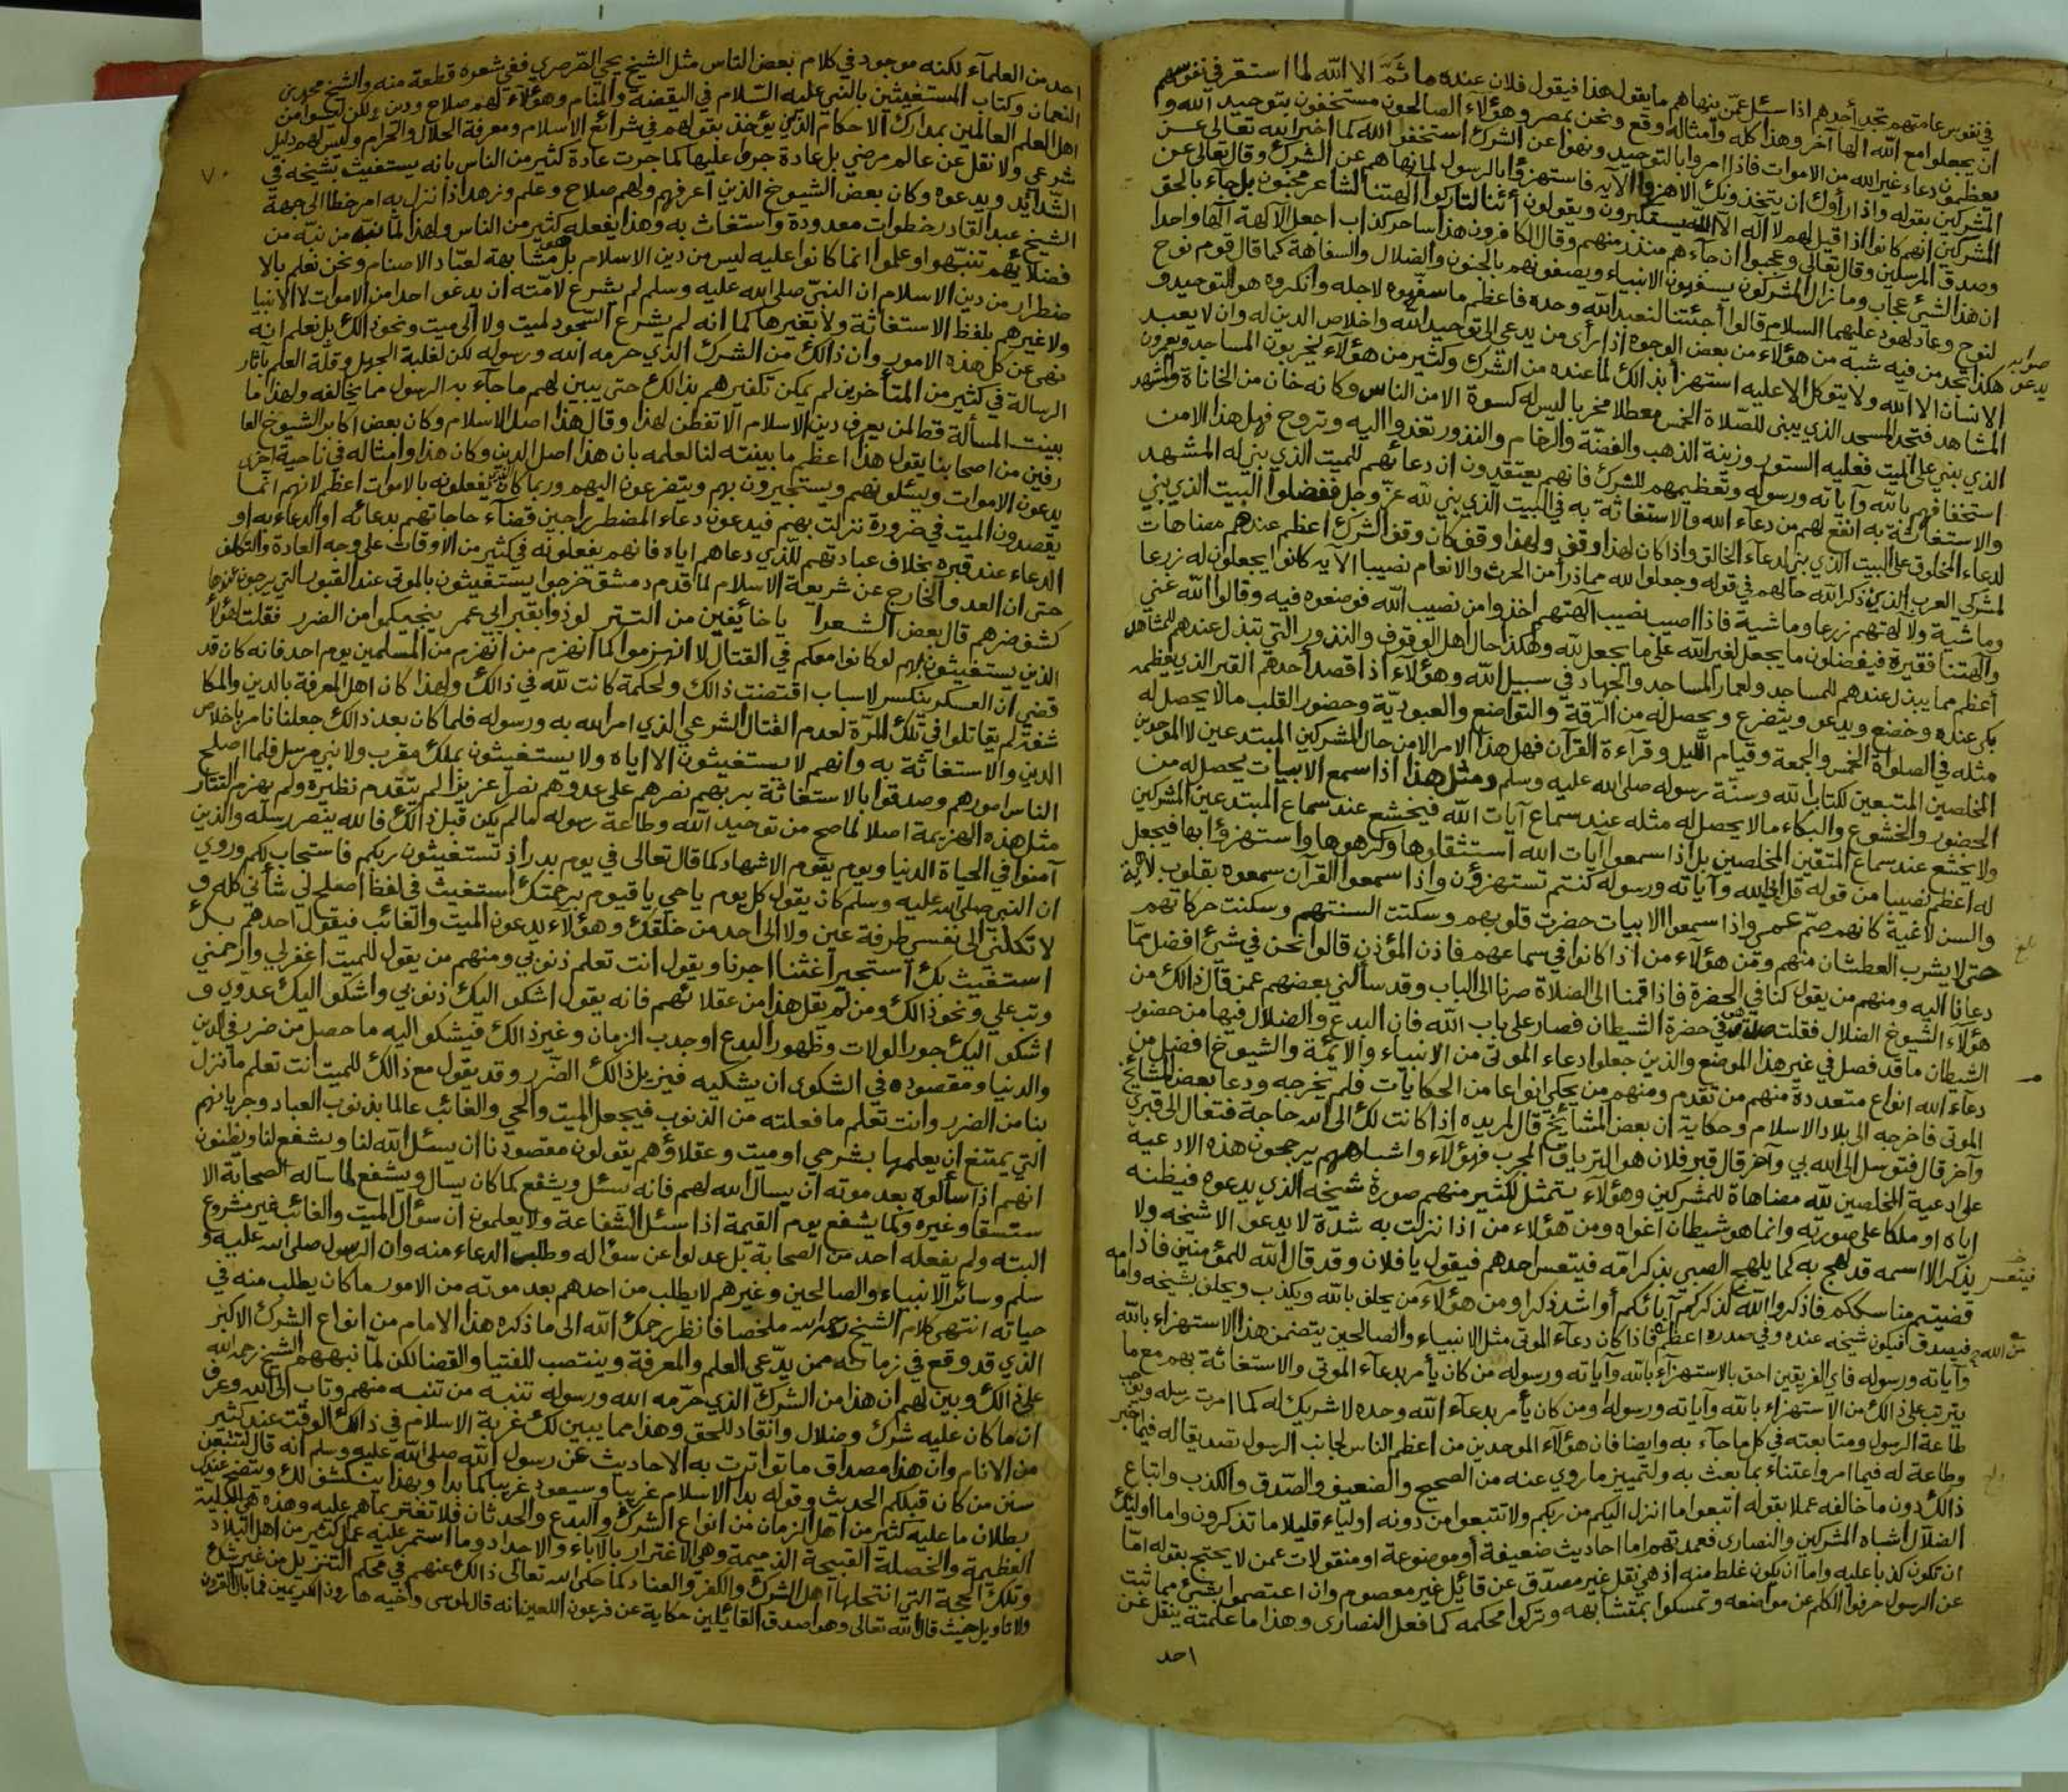 في نفوس عامتهم تجد أحدهم اذا سئل عمّن ينهاهم ما يقول هذا فيقول فلان عنده ما ثَمَّ الا الله لما استقر في نفوسهم
ان يجعلوا مع الله الٰها آخر وهذا كله وامثاله وقع ونحن بمصر وهؤلآء الضالون مستخفون بتوحيد الله و
يعظمون دعاء غير الله من الاموات فاذا امروا بالتوحيد ونهوا عن الشرك استخفوا بالله كما اخبر الله تعالى عن
المشركين بقوله واذا رأوك ان يتخذونك الا هزوا الآيه فاستهزؤا بالرسول لما نهاهم عن الشرك وقال تعالى عن
المشركين انهم كانوا اذا قيل لهم لا اله الا الله يستكبرون ويقولون أئنا لتاركوا آلهتنا لشاعر مجنون بل جاء بالحق
وصدق المرسلين وقال تعالى وعجبوا ان جآءهم منذر منهم وقال الكافرون هذا ساحر كذاب اجعل الآلهة الٰها واحدا
ان هذا لشيئ عجاب وما زال المشركون يسفهون الانبياء ويصفونهم بالجنون والضلال والسفاهة كما قال قوم نوح
لنوح وعاد لهود عليهما السلام قالوا أجئتنا لنعبد الله وحده فاعظم ما سفهوه لاجله وانكروه هو التوحيد و
هكذا تجد من فيه شبه من هؤلآء من بعض الوجوه اذا رأى من يدعو الى توحيد الله واخلاص الدين له وان لا يعبد
الانسان الا الله ولا يتوكل الا عليه استهزأ بذالك لما عنده من الشرك وكثير من هؤلآء يخربون المساجد ويعمرون
المشاهد فتجد المسجد الذي يبنى للصلاة الخمس معطلا مخربا ليس له كسوة الا من الناس وكانه خان من الخانات والمشهد
الذي بني على الميت فعليه الستور وزينة الذهب والفضّة والرخام والنذور تغدوا اليه وتروح فهل هذا الا من
استخفافهم بالله وآياته ورسوله وتعظيمهم للشرك فانهم يعتقدون ان دعائهم للميت الذي بني له المشهد
والاستغاثة به انفع لهم من دعآء الله والاستغاثة به في البيت الذي بني لله عزّ وجل ففضلوا البيت الذي بني
لدعاء المخلوق على البيت الذي بني لدعآء الخالق واذا كان لهذا وقف ولهذا وقف كان وقف الشرك اعظم عندهم مضاهات
لمشركي العرب الذين ذكر الله حالهم في قوله وجعلوا لله مما ذرأ من الحرث والانعام نصيبا الآيه كانوا يجعلون له زرعا
وماشية ولآلهتهم زرعا وماشية فاذا اصيب نصيب آلهتهم اخذوا من نصيب الله فوضعوه فيه وقالوا الله غني
وآلهتنا فقيرة فيفضلون ما يجعل لغير الله على ما يجعل لله وهكذا حال اهل الوقوف والنذور التي تبذل عندهم للمشاهد
أعظم مما يبذل عندهم للمساجد ولعمار المساجد والجهاد في سبيل الله وهؤلاء اذا قصد أحدهم القبر الذي يعظمه
بكى عنده وخضع ويدعو ويتضرع ويحصل له من الرّقة والتواضع والعبوديّة وحضور القلب ما لا يحصل له
مثله في الصلوات الخمس والجمعة وقيام الليل وقرآءة القرآن فهل هذا الامر الا من حال المشركين المبتدعين لا الموحدين
المخلصين المتبعين لكتاب الله وسنّة رسوله صلى الله عليه وسلم ومثل هذا اذا سمع الابيات يحصل له من
الحضور والخشوع والبكاء ما لا يحصل له مثله عند سماع آيات الله فيخشع عند سماع المبتدعين المشركين
ولا يخشع عند سماع المتقين المخلصين بل اذا سمعوا آيات الله استثقلوها وكرهوها واستهزؤا بها فيجعل
له اعظم نصيبا من قوله قل ابالله وآياته ورسوله كنتم تستهزؤن واذا سمعوا القرآن سمعوه بقلوب لاهية
والسن لاغية كانهم صمّ عمي واذا سمعوا الابيات حضرت قلوبهم وسكنت السنتهم وسكنت حركاتهم
حتى لا يشرب العطشان منهم ومن هؤلآء من اذا كانوا في سماعهم فاذن المؤذن قالوا نحن في شئ افضل ممّا
دعانا اليه ومنهم من يقول كنا في الحضرة فاذا قمنا الى الصلاة صرنا الى الباب وقد سألني بعضهم عمن قال ذالك من
هؤلآء الشيوخ الضلال فقلت صدق في حضرة الشيطان فصار على باب الله فان البدع والضلال فيها من حضور
الشيطان ما قد فصل في غير هذا الموضع والذين جعلوا دعاء الموتى من الانبياء والائمّة والشيوخ افضل من
دعآء الله انواع متعددة منهم من تقدم ومنهم من يحكي انواعا من الحكايات فلم يخرجه ودعا بعض المشائخ
الموتى فاخرجه الى بلاد الاسلام وحكاية ان بعض المشائخ قال لمريده اذا كانت لك الى الله حاجة فتعال الى قبري
وآخر قال فتوسل الى الله بي وآخر قال قبر فلان هو الترياق المجرب فهؤلآء واشباههم يرجحون هذه الادعية
على ادعية المخلصين لله مضاهاة للمشركين وهؤلآء يتمثل لكثير منهم صورة شيخه الذي يدعوه فيظنه
اياه او ملكا على صورته وانما هو شيطان اغواه ومن هؤلاء من اذا نزلت به شدة لا يدعو الا شيخه ولا
يذكر الا اسمه قد لهج به كما يلهج الصبي بذكر امّه فيتعس احدهم فيقول يا فلان وقد قال الله للمؤمنين فاذا
قضيتم مناسككم فاذكروا الله كذكركم آبائكم أو اشد ذكرا ومن هؤلآء من يحلف بالله ويكذب ويحلف بشيخه وامامه
فيصدق فيكون شيخه عنده وفي صدره اعظم فاذا كان دعآء الموتى مثل الانبياء والصالحين يتضمن هذا الاستهزاء بالله
وآياته ورسوله فاي الفريقين احق بالاستهزآء بالله وآياته ورسوله من كان يأمر بدعآء الموتى والاستغاثة بهم مع ما
يترتب على ذالك من الاستهزاء بالله وآياته ورسوله او من كان يأمر بدعآء الله وحده لا شريك له كما امرت رسله ويوجب
طاعة الرسول ومتابعته في كل ما جآء به وايضا فان هؤلآء الموحدين من اعظم الناس لجانب الرسول تصديقا له فيما اخبر
وطاعة له فيما امر واعتناء بما بعث به ولتمييز ما روي عنه من الصحيح والضعيف والصّدق والكذب واتباع
ذالك دون ما خالفه عملا بقوله اتبعوا ما انزل اليكم من ربكم ولا تتبعوا من دونه اولياء قليلا ما تذكرون واما اولئك
الضلّال اشباه المشركين والنصارى فعمدتهم اما احاديث ضعيفة أو موضوعة او منقولات عمن لا يحتج بقوله امّا
ان تكون كذبا عليه واما ان يكون غلط منه اذ هي نقل غير مصدّق عن قائل غير معصوم وان اعتصموا بشئ مما ثبت
عن الرسول حرفوا الكلم عن مواضعه وتمسكوا بمتشابهه وتركوا محكمه كما فعل النصارى وهذا ما علمته ينقل عن
احد
صوابه
يدعو
فيتعس
من الله
احد من العلمآء لكنه موجود في كلام بعض الناس مثل الشيخ يحيى الصّرصري ففي شعره قطعة منه والشيخ محمد بن
النعمان وكتاب المستغيثين بالنبي عليه السّلام في اليقضة والمنام وهؤلاء لهم صلاح ودين ولكن ليسوا من
اهل العلم العالمين بمدارك الاحكام الذين يؤخذ بقولهم في شرائع الاسلام ومعرفة الحلال والحرام وليس لهم دليل
شرعي ولا نقل عن عالم مرضي بل عادة جروا عليها كما جرت عادة كثير من الناس بانه يستغيث بشيخه في
الشّدائد ويدعوه وكان بعض الشيوخ الذين اعرفهم ولهم صلاح وعلم وزهد اذا نزل به امر خطا الى جهة
الشيخ عبد القادر خطوات معدودة واستغاث به وهذا يفعله كثير من الناس ولهذا لمّا نبّه من نبّه من
فضلائهم تنبّهوا وعلموا ان ما كانوا عليه ليس من دين الاسلام بل هو مشابهة لعبّاد الاصنام ونحن نعلم بالا
ضطرار من دين الاسلام ان النبيّ صلى الله عليه وسلم لم يشرع لامّته ان يدعو احدا من الاموات لا الانبيا
ولا غيرهم بلفظ الاستغاثة ولا بغيرها كما انه لم يشرع السّجود لميت ولا الى ميت ونحو ذالك بل نعلم انه
نهى عن كل هذه الامور وان ذالك من الشرك الذي حرمه الله ورسوله لكن لغلبة الجهل وقلة العلم بآثار
الرسالة في كثير من المتأخرين لم يمكن تكفيرهم بذالك حتى يبين لهم ما جآء به الرسول مما يخالفه ولهذا ما
بينت المسألة قط لمن يعرف دين الاسلام الا تفطن لهذا وقال هذا اصل الاسلام وكان بعض اكابر الشيوخ العا
رفين من اصحابنا يقول هذا اعظم ما بينته لنا لعلمه بان هذا اصل الدين وكان هذا وامثاله في ناحية اخرى
يدعون الاموات ويسئلونهم ويستجيرون بهم ويتضرعون اليهم وربما كان ما يفعلونه بالاموات اعظم لانهم انما
يقصدون الميت في ضرورة نزلت بهم فيدعون دعاء المضطر راجين قضآء حاجاتهم بدعائه او الدعاء به او
الدعاء عند قبره بخلاف عبادتهم لله الذي دعاهم اياه فانهم يفعلونه في كثير من الاوقات على وجه العادة والتكلف
حتى ان العدو الخارج عن شريعة الاسلام لما قدم دمشق خرجوا يستغيثون بالموتى عند القبور التي يرجون عندها
كشف ضرهم قال بعض الشعرا يا خائفين من التتر لوذوا بقبر ابي عمر ينجيكموا من الضرر فقلت لهؤلآ
الذين يستغيثون بهم لو كانوا معكم في القتال لانهزموا كما انهزم من انهزم من المسلمين يوم احد فانه كان قد
قضي ان العسكر ينكسر لاسباب اقتضت ذالك ولحكمة كانت لله في ذالك ولهذا كان اهل المعرفة بالدين والمكا
شفة لم يقاتلوا في تلك المرّة لعدم القتال الشرعي الذي امر الله به ورسوله فلما كان بعد ذالك جعلنا نامر باخلاص
الدين والاستغاثة به وانهم لا يستغيثون الا اياه ولا يستغيثون بملك مقرب ولا نبي مرسل فلما اصلح
الناس امورهم وصدقوا بالاستغاثة بربهم نصرهم على عدوهم نصرا عزيزا لم يتقدم نظيره ولم يهزم التتار
مثل هذه الهزيمة اصلا لما صح من توحيد الله وطاعة رسوله ما لم يكن قبل ذالك فالله ينصر رسله والذين
آمنوا في الحياة الدنيا ويوم يقوم الاشهاد كما قال تعالى في يوم بدر اذ تستغيثون ربكم فاستجاب لكم وروي
ان النبي صلى الله عليه وسلم كان يقول كل يوم يا حي يا قيوم برحمتك استغيث في لفظ اصلح لي شأني كله و
لا تكلني الى نفسي طرفة عين ولا الى احد من خلقك وهؤلآء يدعون الميت والغائب فيقول احدهم بك
استغيث بك استجير أغثنا اجرنا ويقول انت تعلم ذنوبي ومنهم من يقول للميت اغفر لي وارحمني
وتب علي ونحو ذالك ومن لم يقل هذا من عقلائهم فانه يقول اشكو اليك ذنوبي واشكو اليك عدوّي و
اشكو اليك جور الولات وظهور البدع او جدب الزمان وغير ذالك فيشكو اليه ما حصل من ضرر في الدين
والدنيا ومقصوده في الشكوى ان يشكيه فيزيل ذالك الضّرر وقد يقول مع ذالك للميت انت تعلم ما نزل
بنا من الضرر وانت تعلم ما فعلته من الذنوب فيجعل الميت والحي والغائب عالما بذنوب العباد وجرياتهم
التي يمتنع ان يعلمها بشر حي او ميت وعقلاؤهم يقولون مقصودنا ان يسئل الله لنا ويشفع لنا ويظنون
انهم اذا سألوه بعد موته ان يسأل الله لهم فانه يسئل ويشفع كما كان يسأل ويشفع لما سأله الصحابة الا
ستسقا وغيره وكما يشفع يوم القيمة اذا سئل الشفاعة ولا يعلمون ان سؤال الميت والغائب غير مشروع
البته ولم يفعله احد من الصحابة بل عدلوا عن سؤاله وطلب الدعاء منه وان الرسول صلى الله عليه و
سلم وسائر الانبياء والصالحين وغيرهم لا يطلب من احدهم بعد موته من الامور ما كان يطلب منه في
حياته انتهى كلام الشيخ رحمه الله ملخصا فانظر رحمك الله الى ما ذكره هذا الامام من انواع الشرك الاكبر
الذي قد وقع في زمانه ممن يدّعي العلم والمعرفة وينتصب للفتيا والقضا لكن لمّا نبههم الشيخ رحمه الله
على ذالك وبين لهم ان هذا من الشرك الذي حرّمه الله ورسوله تنبه من تنبه منهم وتاب الى الله وعرف
ان ما كان عليه شرك وضلال وانقاد للحق وهذا مما يبين لك غربة الاسلام في ذالك الوقت عند كثير
من الانام وان هذا مصداق ما تواترت به الاحاديث عن رسول الله صلى الله عليه وسلم انه قال لتتبعن
سنن من كان قبلكم الحديث وقوله بدأ الاسلام غريبا وسيعود غريبا كما بدا وبهذا ينكشف لك ويتضح عندك
بطلان ما عليه كثير من اهل الزمان من انواع الشرك والبدع والحدثان فلا تغتر بما هم عليه وهذه هي البلية
العظيمة والخصلة القبيحة الذميمة وهي الاغترار بالآباء والاجداد وما استمر عليه عمل كثير من اهل البلاد
وتلك الحجة التي انتحلها اهل الشرك والكفر والعناد كما حكى الله تعالى ذالك عنهم في محكم التنزيل من غير شك
ولا تاويل حيث قال الله تعالى وهو اصدق القائلين حكاية عن فرعون اللعين انه قال لموسى وأخيه هارون الكريمين فما بال القرون
٧٠